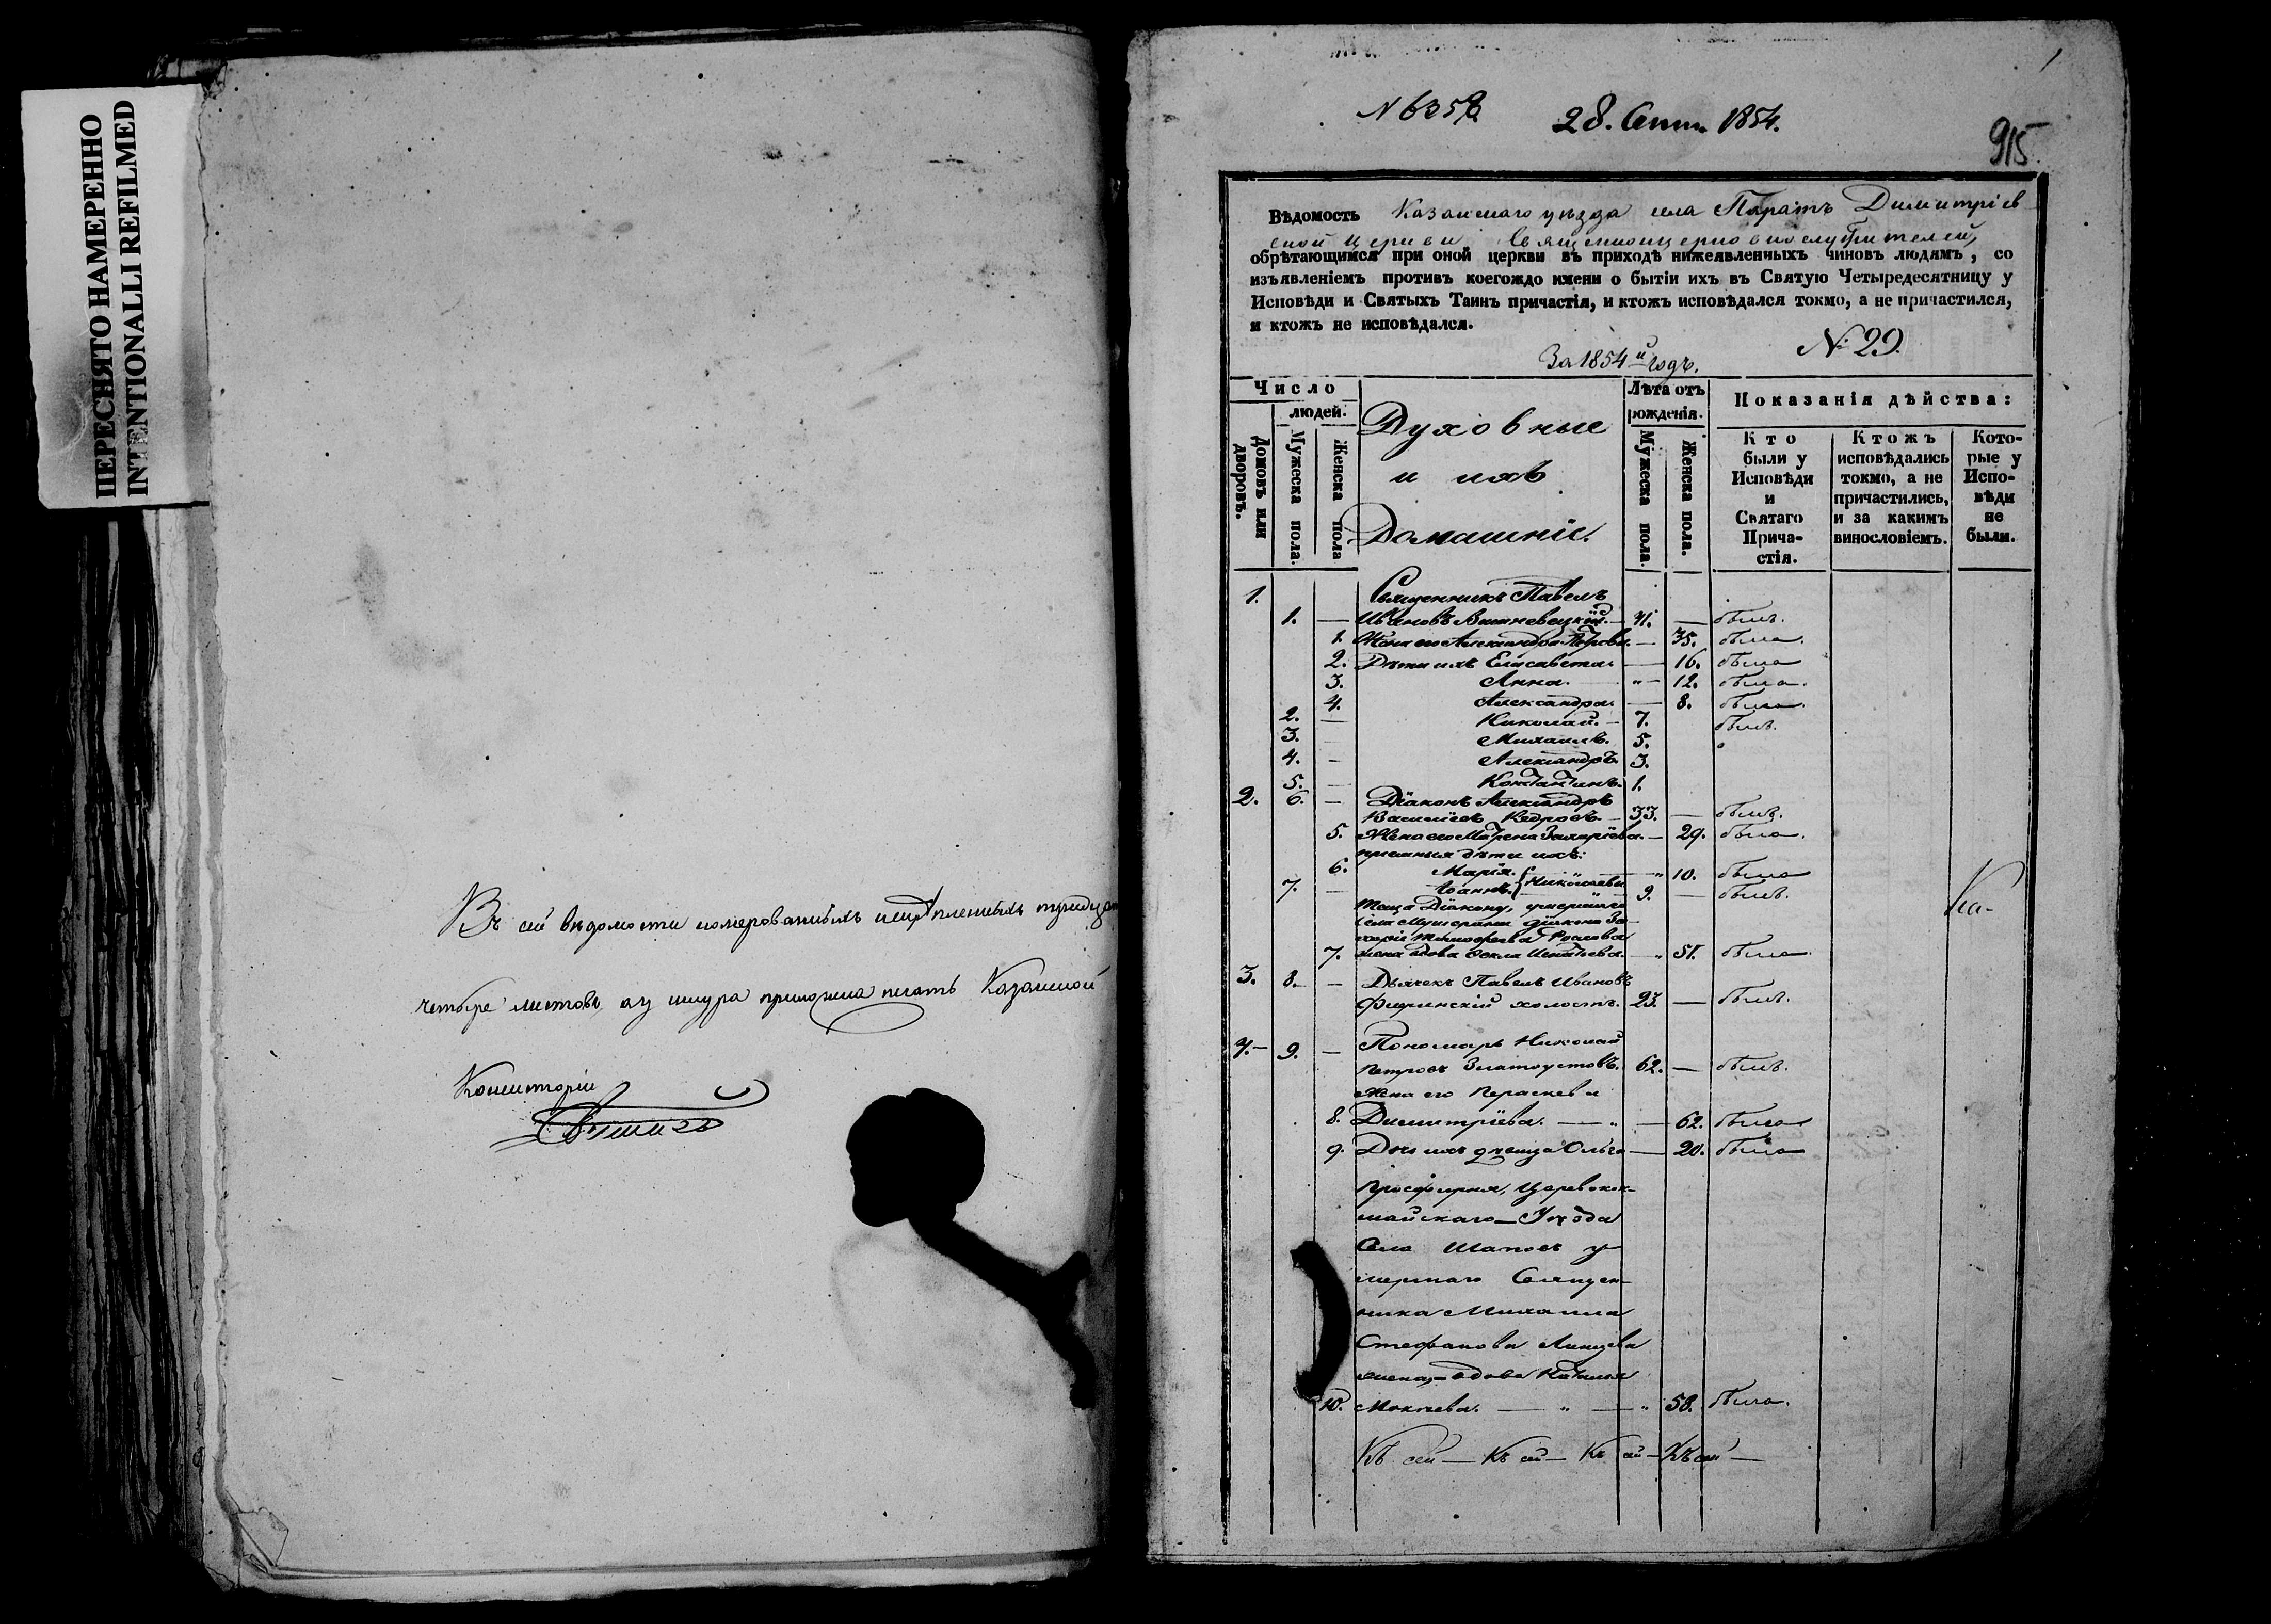 ПЕРЕСНЯТО НАМЕРЕННО
INTENTIONALLI REFILMED
Въ сей ведомости номерованныхъ тридцать
четыре листовъ, ку шнура приложена печать Казанской
Консисторіи
N 6358
28. Сент. 1854.
1
915
Вѣдомость Казанскаго уѣзда села Паратъ Димитріев
ской церкви Священноцерковнослужителей,
обрѣтающимся при оной церкви въ приходѣ нижеявленныхъ чиновъ людямъ, со
изъявленіемъ противъ коегождо имени о бытіи ихъ въ Святую Четыредесятницу у
Исповѣди и Святыхъ Таинъ причастія, и ктожъ исповѣдался токмо, а не причастился,
и ктожъ не исповѣдался.
№ 29.
За 1854й годъ.
Число
людей.
Домовъ или дворовъ.
Мужеска пола.
Женска пола
Духовные
и ихъ
Домашніе.
Лѣта отъ
рожденія.
Мужеска пола.
Женска пола.
Показанія дѣйства:
Кто
были у
Исповѣди
и
Святаго
Прича-
стія.
Ктожъ
исповѣдались
токмо, а не
причастились,
и за какимъ
винословіемъ.
Кото-
рые у
Испо-
вѣди
не
были.
1. Священникъ Павелъ
1. — Ивановъ Вишневецкій. 41. — былъ.
1. Жена его Александра Петрова. — 35. была.
2. Дѣти ихъ Елисавета — 16. была
3. Анна. „ — 12. была.
4. Александра. — 8. была.
2. — Николай. — 7. былъ.
3. Михаилъ. 5.
4. — Александръ. 3.
5. — Константинъ. 1.
2. 6. — Діаконъ Александръ
Васильевъ Кедровъ. — 33. — былъ.
5. Жена его Матрена Захаріева. — 29. была.
пріемныя дѣти ихъ:
6. Марія. „ 10. была
7. — Іоаннъ. Николаевы 9. — былъ.
Ка-
Теща Діакону, умершаго
села діакона За-
харіи Тимофеева
7. жена вдова Фекла Игнатьева. „ 51. была.
3. 8. — Дьячекъ Павелъ Ивановъ
холостъ. 23. — былъ.
4. — 9. — Пономарь Николай
Петровъ Златоустовъ. 62. — былъ.
Жена его Параскева
8. Димитріева. — „ — 62. была
9. Дочь ихъ дѣвица Ольга — 20. была
Просфирня, Царевокок-
шайскаго Уѣзда
Села у
мершаго Священ-
ника Михаила
Стефанова
жена, вдова Наталья
10. Мокіева. — „ — „ 58. была.
Къ сей — Къ сей — Къ сей — Къ сей —